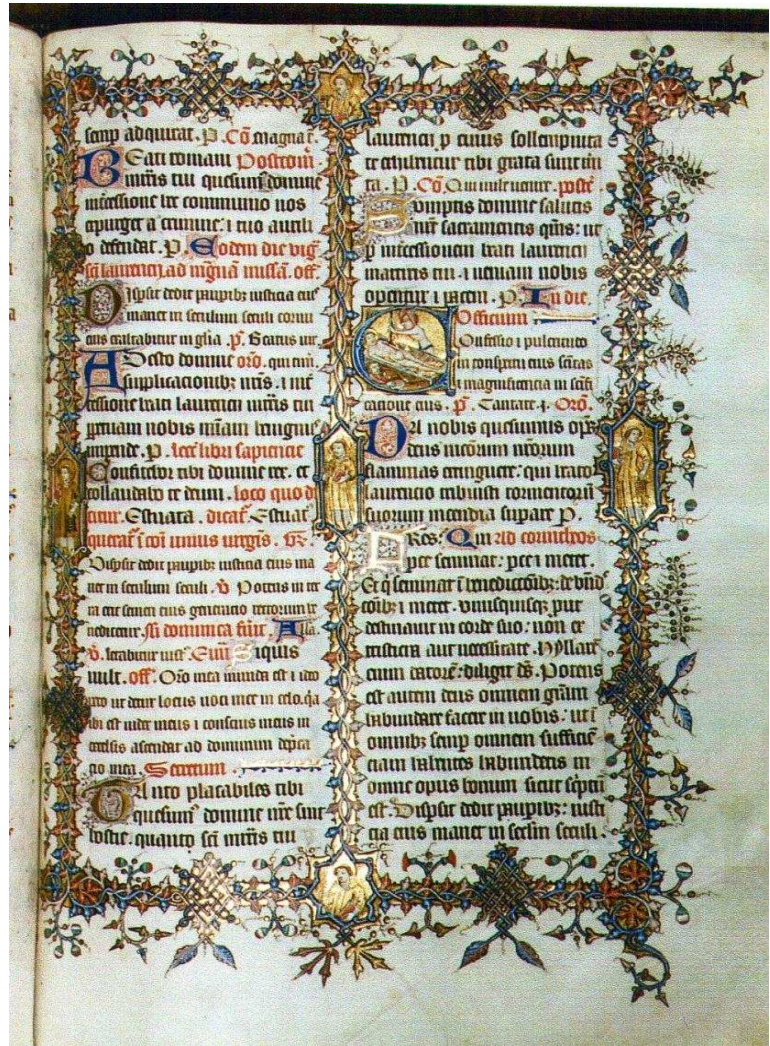 semp adquirat. P. Cō magna ē.
Beati romani Postcom̄.
mr̄ris tui quesum domine
intcessione hec communio nos
expurget a crimine: i tuo auxili
o defendat. P. Eodem die viḡ
sc̄i laurencij ad mḡnā missā. off.
Dispsit dedit paupibz iusticia eius
manet in seculum seculi cornu
eius exaltabitur in glīa ps̄. Beatus uir.
Adesto domine oro. qm̄
supplicacionibz nr̄is. i int
cessione beati laurencij mr̄ris tui
petuam nobis mīam benigne
impende. P. lecc̄ libri sapiencie
Confitebor tibi domine rex. et
collaudabo te deum. loco quo d
citur. Estuata. dicat̄. Estuat̄
querat̄ i cōi unius uirgīs. Gr̄.
Dispsit dedit paupibz iusticia eius ma
net in seculum seculi. v̄ Potens in ter
ra erit semen eius generacio rectorum be
nedicetur. Si dominica fūit. Alla.
v̄. letabitur iust̄. Euu Siquis
mult. off. Orō mea munda est i ideo
peto ut detur locus uoci mee in celo. q̄a
ibi est iudex meus i conscius meus in
excelsis ascendat ad dominum dep̄ca
cio mea. Secretum.
Tanto placabiles tibi
quesum domine nr̄e sint
hostie. quanto sc̄i mr̄ris tui
laurencij p cuius sollempnita
te exhibentur tibi grata sunt
ta. P. Cō. Qui mult uenire. postc̄
Sumptis domine salutis
nr̄e sacramentis qm̄s: ut
p intcessionem beati laurencij
martiris tui. i ueniam nobis
opentur i pacem. P. In die.
Officium
Confessio i pulcritudo
in conspectu eius sc̄itas
i magnificencia in sc̄ifi
cacione eius. ps̄. Cantate .j. Orō.
Da nobis quesumus op̄s
deus uiciorum nr̄orum
flammas extinguere: qui beato
laurencio tribuisti tormentorū
suorum incendia supare P.
Fres: Qui Ad corintheos
pce seminat: pce i metet.
Et q̄ seminat ī benediccōibz: de bn̄d
cōibz i metet. vnusquisqz put
destinauit in corde suo: non ex
tristicia aut necessitate. Hyllarē
enim datorē: diligit ds̄. Potens
est autem deus omnem grām
habundare facere in uobis: ut ī
omnibz semp omnem sufficiē
ciam habentes habundetis in
omne opus bonum sicut sc̄ptū
est. Dispsit dedit paupibz: iusti
cia eius manet in sc̄lm seculi.